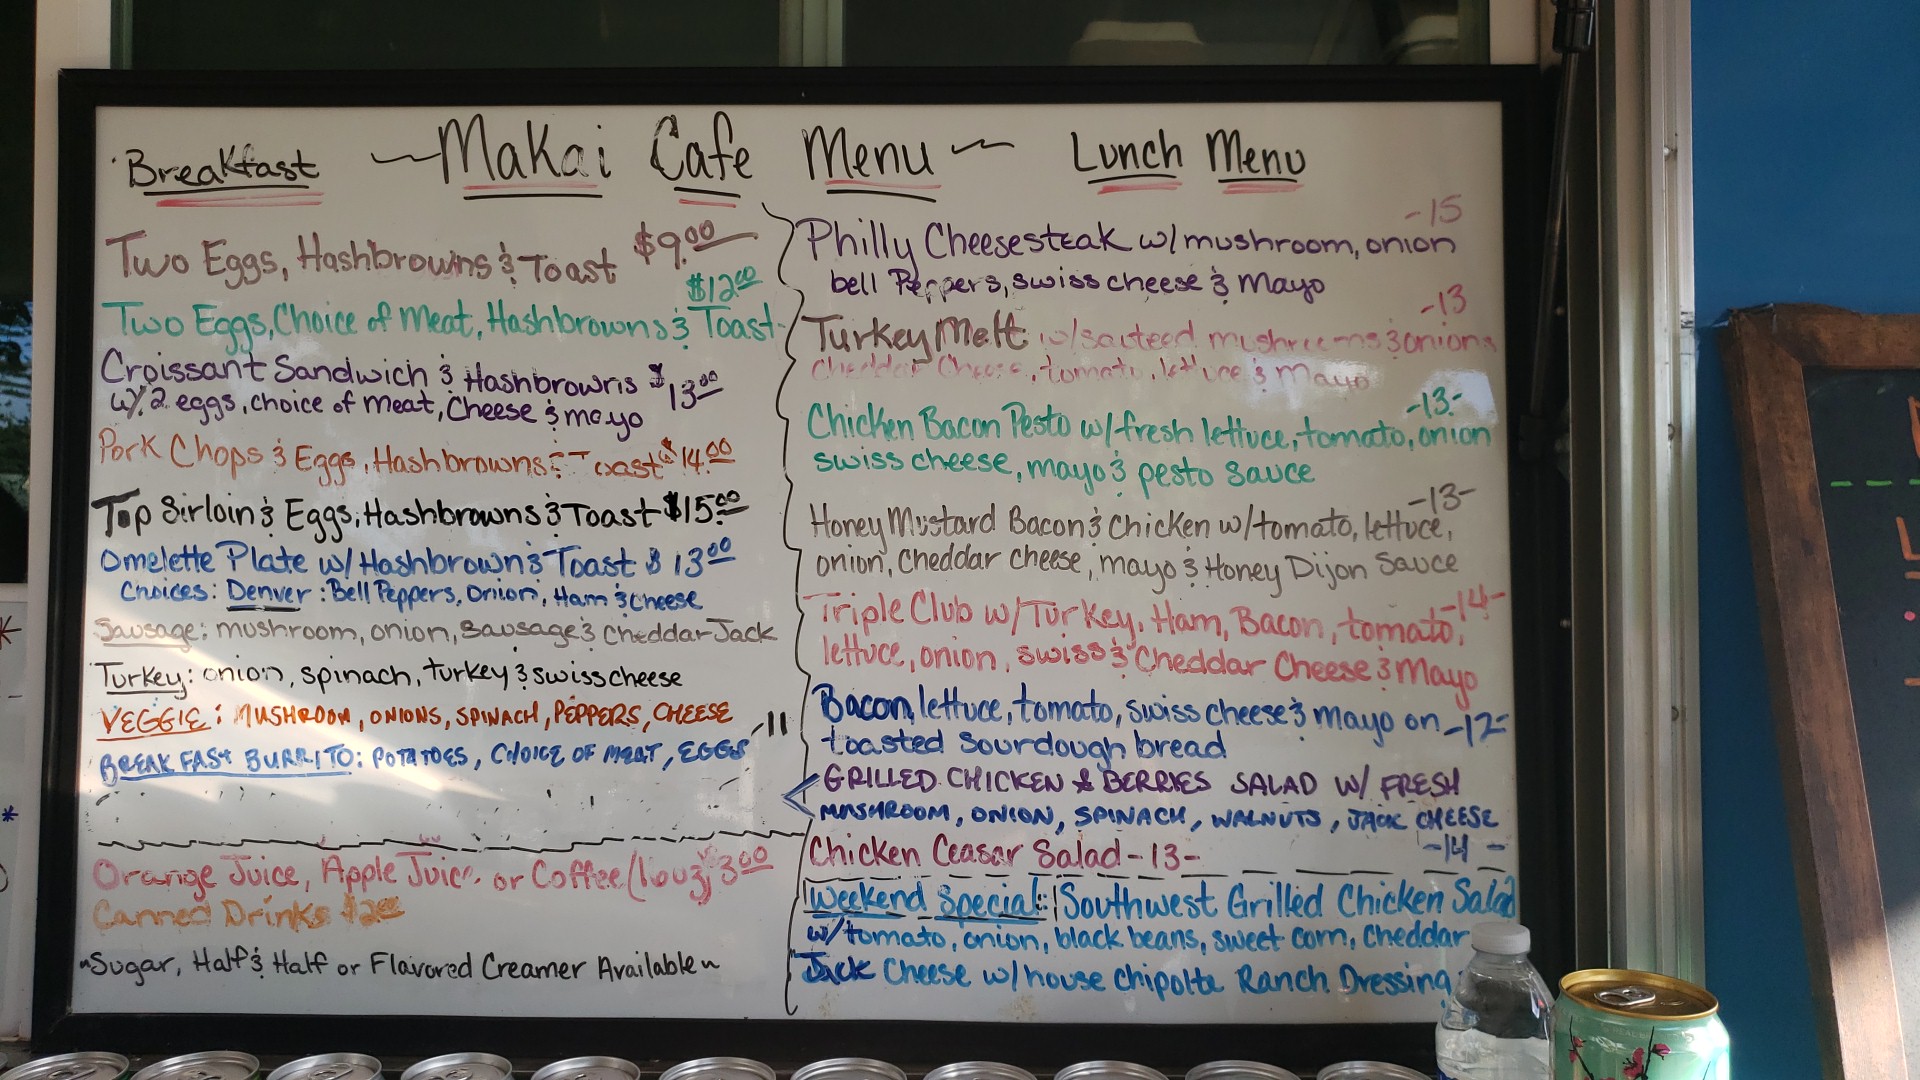 Breakfast
~Makai Cafe Menu~
Two Eggs, Hashbrowns & Toast $9.00
$12.00
Two Eggs, Choice of Meat, Hashbrowns & Toast
Croissant Sandwich & Hashbrowns $13.00
w/ 2 eggs, choice of meat, Cheese & mayo
Pork Chops & Eggs, Hashbrowns & Toast $14.00
Top Sirloin & Eggs, Hashbrowns & Toast $15.00
Omelette Plate w/ Hashbrown & Toast $13.00
Choices: Denver: Bell Peppers, Onion, Ham & Cheese
Sausage: mushroom, onion, sausage & Cheddar Jack
Turkey: onion, spinach, turkey & swiss cheese
VEGGIE: MUSHROOM, ONIONS, SPINACH, PEPPERS, CHEESE
-11
BREAKFAST BURRITO: POTATOES, CHOICE OF MEAT, EGGS
Orange Juice, Apple Juice or Coffee (16oz) 3.00
Canned Drinks $2.00
~Sugar, Half & Half or Flavored Creamer Available~
Lunch Menu
-15
Philly Cheesesteak w/ mushroom, onion
bell Peppers, swiss cheese & Mayo
-13
Turkey Melt w/ sauteed mushrooms & onions
Cheddar Cheese, tomato, lettuce & Mayo
-13-
Chicken Bacon Pesto w/ fresh lettuce, tomato, onion
swiss cheese, mayo & pesto sauce
-13-
Honey Mustard Bacon & Chicken w/ tomato, lettuce,
onion, Cheddar cheese, mayo & Honey Dijon Sauce
Triple Club w/ Turkey, Ham, Bacon, tomato, -14-
lettuce, onion, swiss & Cheddar Cheese & Mayo
Bacon, lettuce, tomato, swiss cheese & mayo on -12-
toasted sourdough bread
GRILLED CHICKEN & BERRIES SALAD W/ FRESH
MUSHROOM, ONION, SPINACH, WALNUTS, JACK CHEESE
-14-
Chicken Ceasar Salad -13-
Weekend Special: Southwest Grilled Chicken Salad
w/ tomato, onion, black beans, sweet corn, cheddar
Jack Cheese w/ house chipolte Ranch Dressing